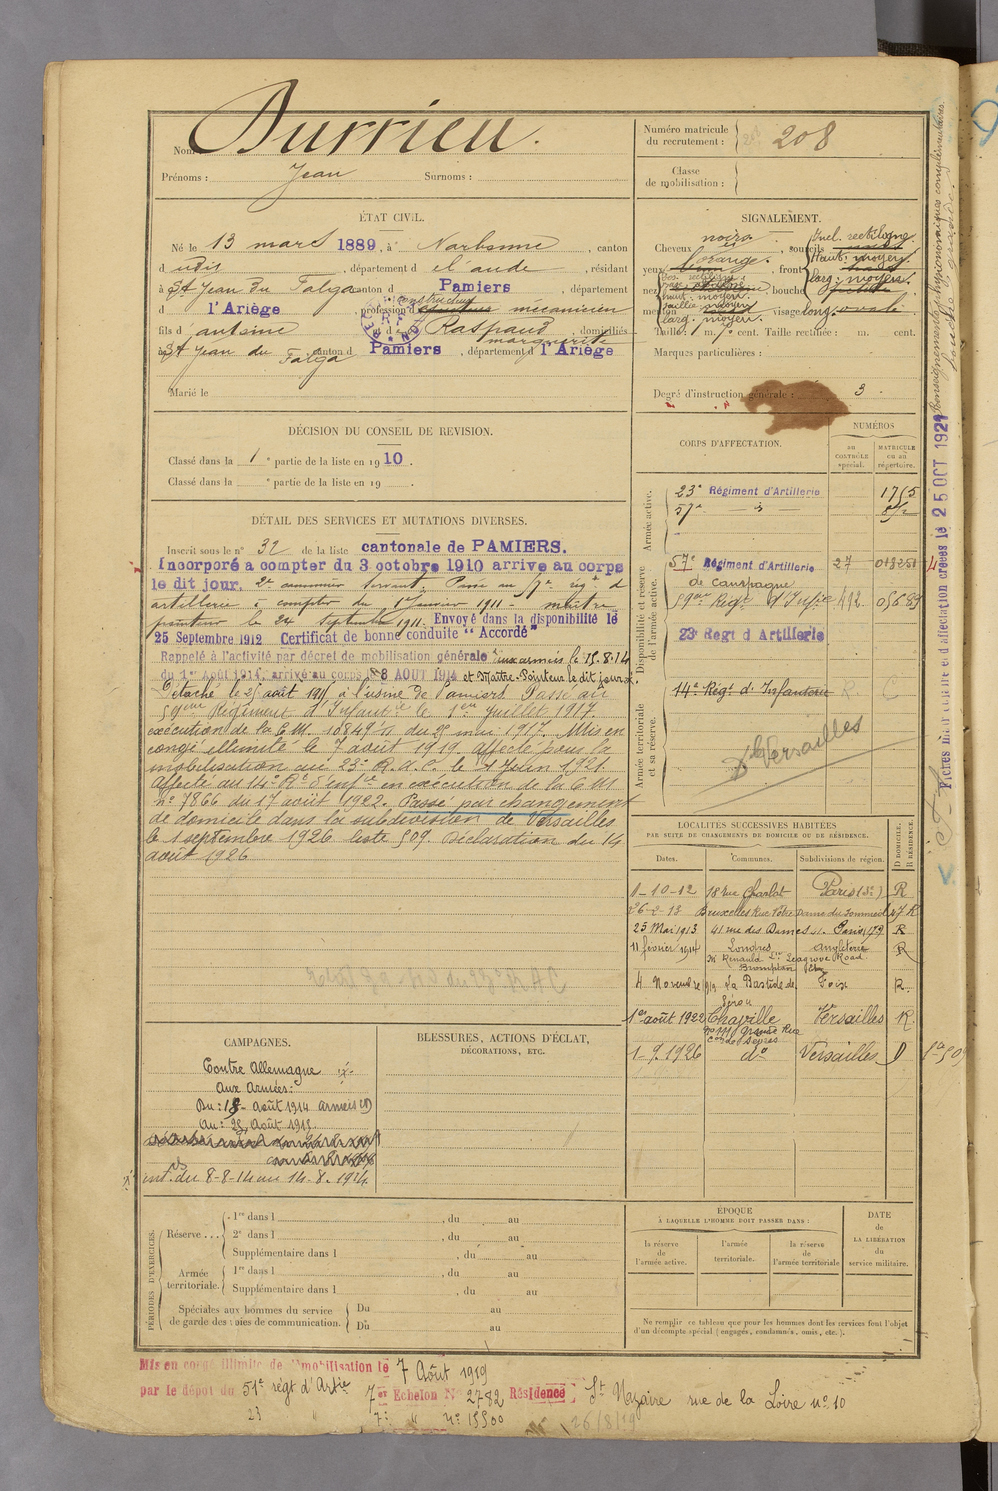 Nom Durrieu.
Prénoms : Jean Surnoms :
Numéro matricule du recrutement : 208
Classe de mobilisation :
ÉTAT CIVIL.
Né le 13 mars 1889, à Narbonne, canton
d udis, département d el'aude, résidant
à St Jean du Falga canton d Pamiers, département
d l'Ariège, profession d constructeur mécanicien
fils d'antoine et de Raspaud marguerite, domiciliés
à St Jean du Falga canton d Pamiers, département d l'Ariège
Marié le
SIGNALEMENT.
Cheveux noirs. sourcils
Incl. rectiligne
yeux orangé. front
Haut. moyen
larg. moyen.
nez bouche
haut. moyen.
saillie moyen
larg. moyen.
menton visage long. ovale
Taille : 1 m. cent. Taille rectifiée : m. cent.
Marques particulières :
Degré d'instruction générale : 3
DÉCISION DU CONSEIL DE REVISION.
Classé dans la 1e partie de la liste en 1910.
Classé dans la e partie de la liste en 19 .
DÉTAIL DES SERVICES ET MUTATIONS DIVERSES.
Inscrit sous le n° 32 de la liste cantonale de PAMIERS.
Incorporé a compter du 3 octobre 1910 arrivé au corps
le dit jour. 2e canonnier servant. Passé au 57e régt d
artillerie à compter du 1er Janvier 1911 - maitre
pointeur le 24 septembre 1911. Envoyé dans la disponibilité le
25 Septembre 1912 Certificat de bonne conduite "Accordé"
Rappelé à l'activité par décret de mobilisation générale aux armées le 15.8.14
du 1er Août 1914, arrivé au corps le 8 AOUT 1914 et Maître-Pointeur le dit jour.
Détaché le 25 août 1915 à l'usine de Pamiers Passé au
59eme Régiment d'Infantie le 1er Juillet 1917.
exécution de la C.M. 18849 du 29 mai 1917. Mis en
congé illimité le 7 août 1919. affecté pour la
mobilisation au 23e R.A.C. le 1 Juin 1921.
Affecté au 14e Rt d'infie en exécution de la C.M
n° 7866 du 17 août 1922. Passé par changement
de domicile dans la subdivision de Versailles
le 1 septembre 1926 liste 509. Déclaration du 14
août 1926
CORPS D'AFFECTATION.
NUMÉROS
au CONTRÔLE spécial.
MATRICULE ou au répertoire.
Armée active.
23e Régiment d'Artillerie 1755
57e - d° -
Disponibilité et réserve de l'armée active.
57e Régiment d'Artillerie 27 013251
de campagne
59eme Régt d'Infie 492 05689
23e Regt d Artillerie
Armée territoriale et sa réserve.
14e Régt d'Infanterie R. C
Versailles
Fiches mod crées le 25 OCT 1921
LOCALITÉS SUCCESSIVES HABITÉES
PAR SUITE DE CHANGEMENTS DE DOMICILE OU DE RÉSIDENCE.
Dates. Communes. Subdivisions de région. D DOMICILE. R RÉSIDENCE.
1-10-12 18 rue Charlot Paris (3e) R
26-2-13 Bruxelles Rue Notre Dame du Sommeil 47 R
25 Mai 1913 41 rue des Dames 41. Paris 17e R
11 février 1914 Londres Angleterre R
Seagrove Road
Brompton
4 Novembre 1919 La Bastide de Sérou Foix R.
1er août 1922 Chaville Versailles R
Grande Rue
Con de Sèvres
1-9.1926 d° Versailles D
CAMPAGNES.
Contre Allemagne
Aux Armées:
Du : 15 - Août 1914 armées
Au : 25 Août 1915
int. du 8-8-14 au 14.8.1914.
BLESSURES, ACTIONS D'ÉCLAT,
DÉCORATIONS, ETC.
PÉRIODES D'EXERCICES.
Réserve... 1re dans l , du au
2e dans l , du au
Supplémentaire dans l , du au
Armée territoriale. 1re dans l , du au
Supplémentaire dans l , du au
Spéciales aux hommes du service de garde des voies de communication. Du au
Du au
ÉPOQUE
À LAQUELLE L'HOMME DOIT PASSER DANS :
la réserve de l'armée active.
l'armée territoriale.
la réserve de l'armée territoriale
DATE de LA LIBÉRATION du service militaire.
Ne remplir ce tableau que pour les hommes dont les services font l'objet
d'un décompte spécial (engagés, condamnés, omis, etc.).
Mis en congé illimité de démobilisation le 7 Août 1919
par le dépôt du 51e régt d'Artie 7er Echelon N° 2782 Résidence St Nazaire rue de la Loire n° 10
23 " 7e " n° 15500 26/8/19